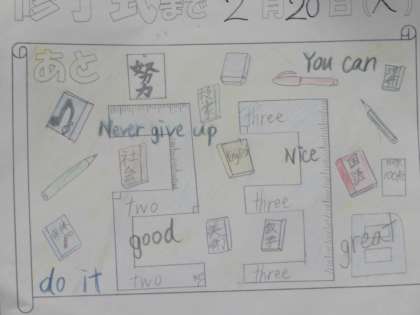 修了式まで 2月20日(火)
あと
努力
You can
Never give up
three
社会
English
Nice
国語
two
three
good
three
great
do it
two